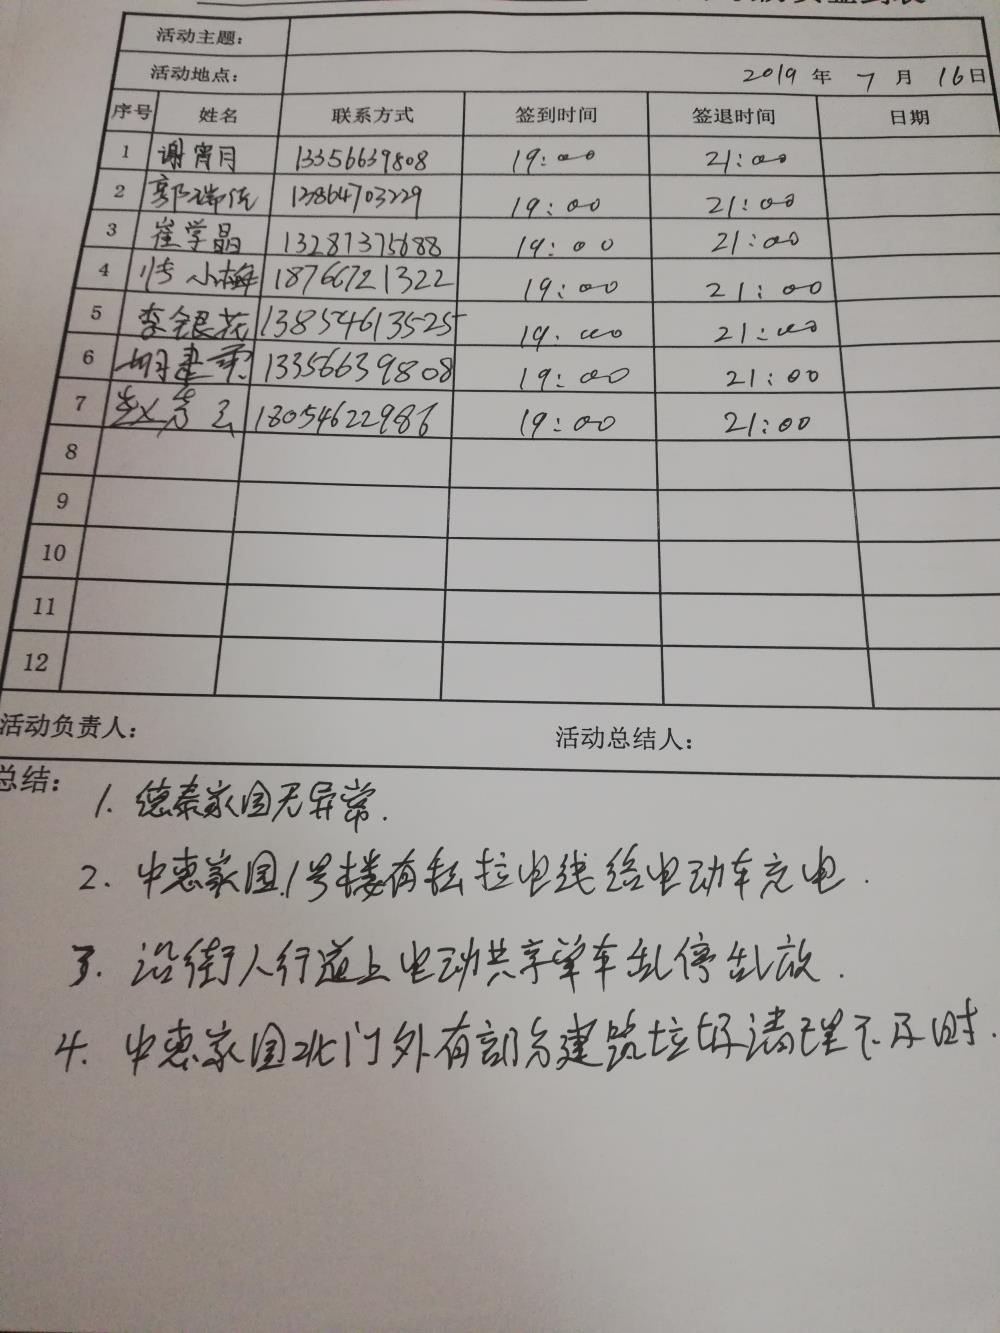 活动主题：
活动地点： 2019 年 7 月 16日
序号 姓名 联系方式 签到时间 签退时间 日期
1 谢宵月 13356639808 19：00 21：00
2 郭瑞 13864703229 19：00 21：00
3 崔学晶 13287375688 19：00 21：00
4 小梅 18766721322 19：00 21：00
5 李银花 13854613525 19：00 21：00
6 胡建 13356639808 19：00 21：00
7 赵 18054622986 19：00 21：00
8
9
10
11
12
活动负责人： 活动总结人：
总结：
1. 德泰家园无异常.
2. 中惠家园.1号楼有私拉电线给电动车充电.
3. 沿街人行道上电动共享单车乱停乱放.
4. 中惠家园北门外有部分建筑垃圾清理不及时.